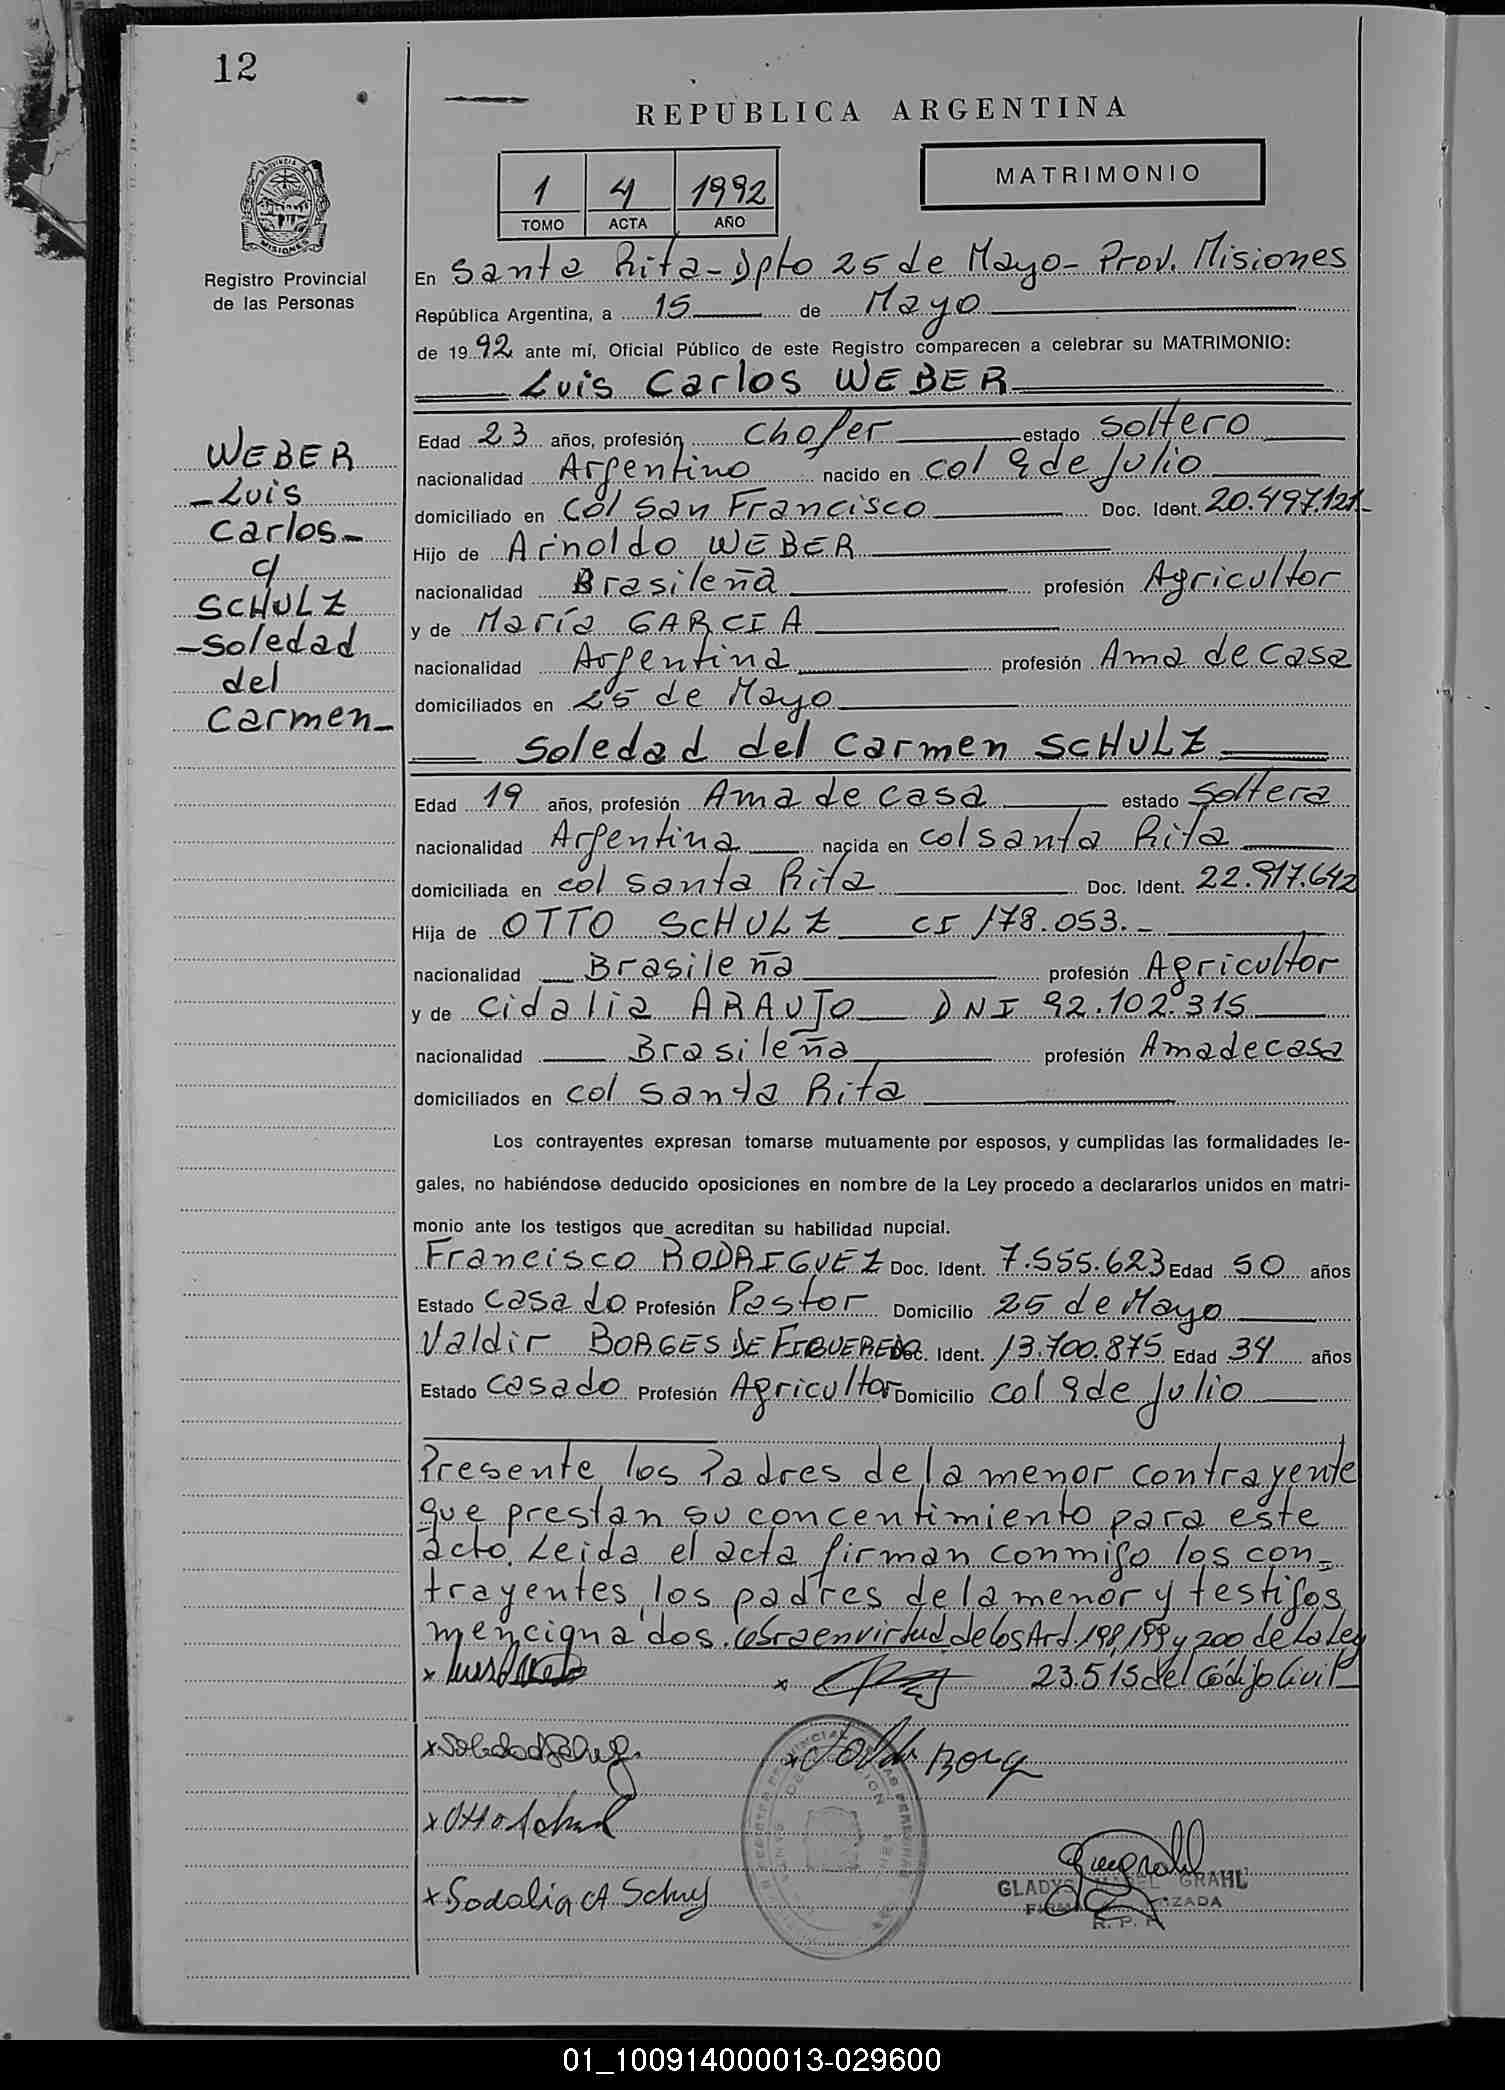 12
REPUBLICA ARGENTINA
MATRIMONIO
1 4 1992
TOMO ACTA AÑO
PROVINCIA
MISIONES
Registro Provincial
de las Personas
En Santa Rita - Dpto 25 de Mayo - Prov. Misiones
República Argentina, a 15 de Mayo
de 1992 ante mí, Oficial Público de este Registro comparecen a celebrar su MATRIMONIO:
Luis Carlos WEBER
WEBER
- Luis
Carlos -
c/
SCHULZ
- Soledad
del
Carmen -
Edad 23 años, profesión Chofer estado Soltero
nacionalidad Argentino nacido en Col 9 de Julio
domiciliado en Col San Francisco Doc. Ident. 20.497.121 -
Hijo de Arnoldo WEBER
nacionalidad Brasileña profesión Agricultor
y de María GARCIA
nacionalidad Argentina profesión Ama de Casa
domiciliados en 25 de Mayo
Soledad del Carmen SCHULZ
Edad 19 años, profesión Ama de casa estado Soltera
nacionalidad Argentina nacida en col santa Rita
domiciliada en col santa Rita Doc. Ident. 22.917.642
Hija de OTTO SCHULZ CI 178.053. -
nacionalidad Brasileña profesión Agricultor
y de Cidalia ARAUJO DNI 92.102.315
nacionalidad Brasileña profesión Ama de casa
domiciliados en col santa Rita
Los contrayentes expresan tomarse mutuamente por esposos, y cumplidas las formalidades le-
gales, no habiéndose deducido oposiciones en nombre de la Ley procedo a declararlos unidos en matri-
monio ante los testigos que acreditan su habilidad nupcial.
Francisco RODRIGUEZ Doc. Ident. 7.555.623 Edad 50 años
Estado Casado Profesión Pastor Domicilio 25 de Mayo
Valdir BORGES DE FIGUEREDO Doc. Ident. 13.700.875 Edad 34 años
Estado Casado Profesión Agricultor Domicilio Col 9 de Julio
Presente los Padres de la menor contrayente
que prestan su concentimiento para este
acto. Leida el acta firman conmigo los con-
trayentes, los padres de la menor y testigos
mencionados. en virtud de los Art. 198, 199 y 200 de la Ley
23.515 del Código Civil -
x
x
x Soledad Schulz
x Valdir Borg
x Otto Schul
x Sodalia A Schulz
GLADYS MABEL GRAHL
R. P. P.
01_100914000013-029600